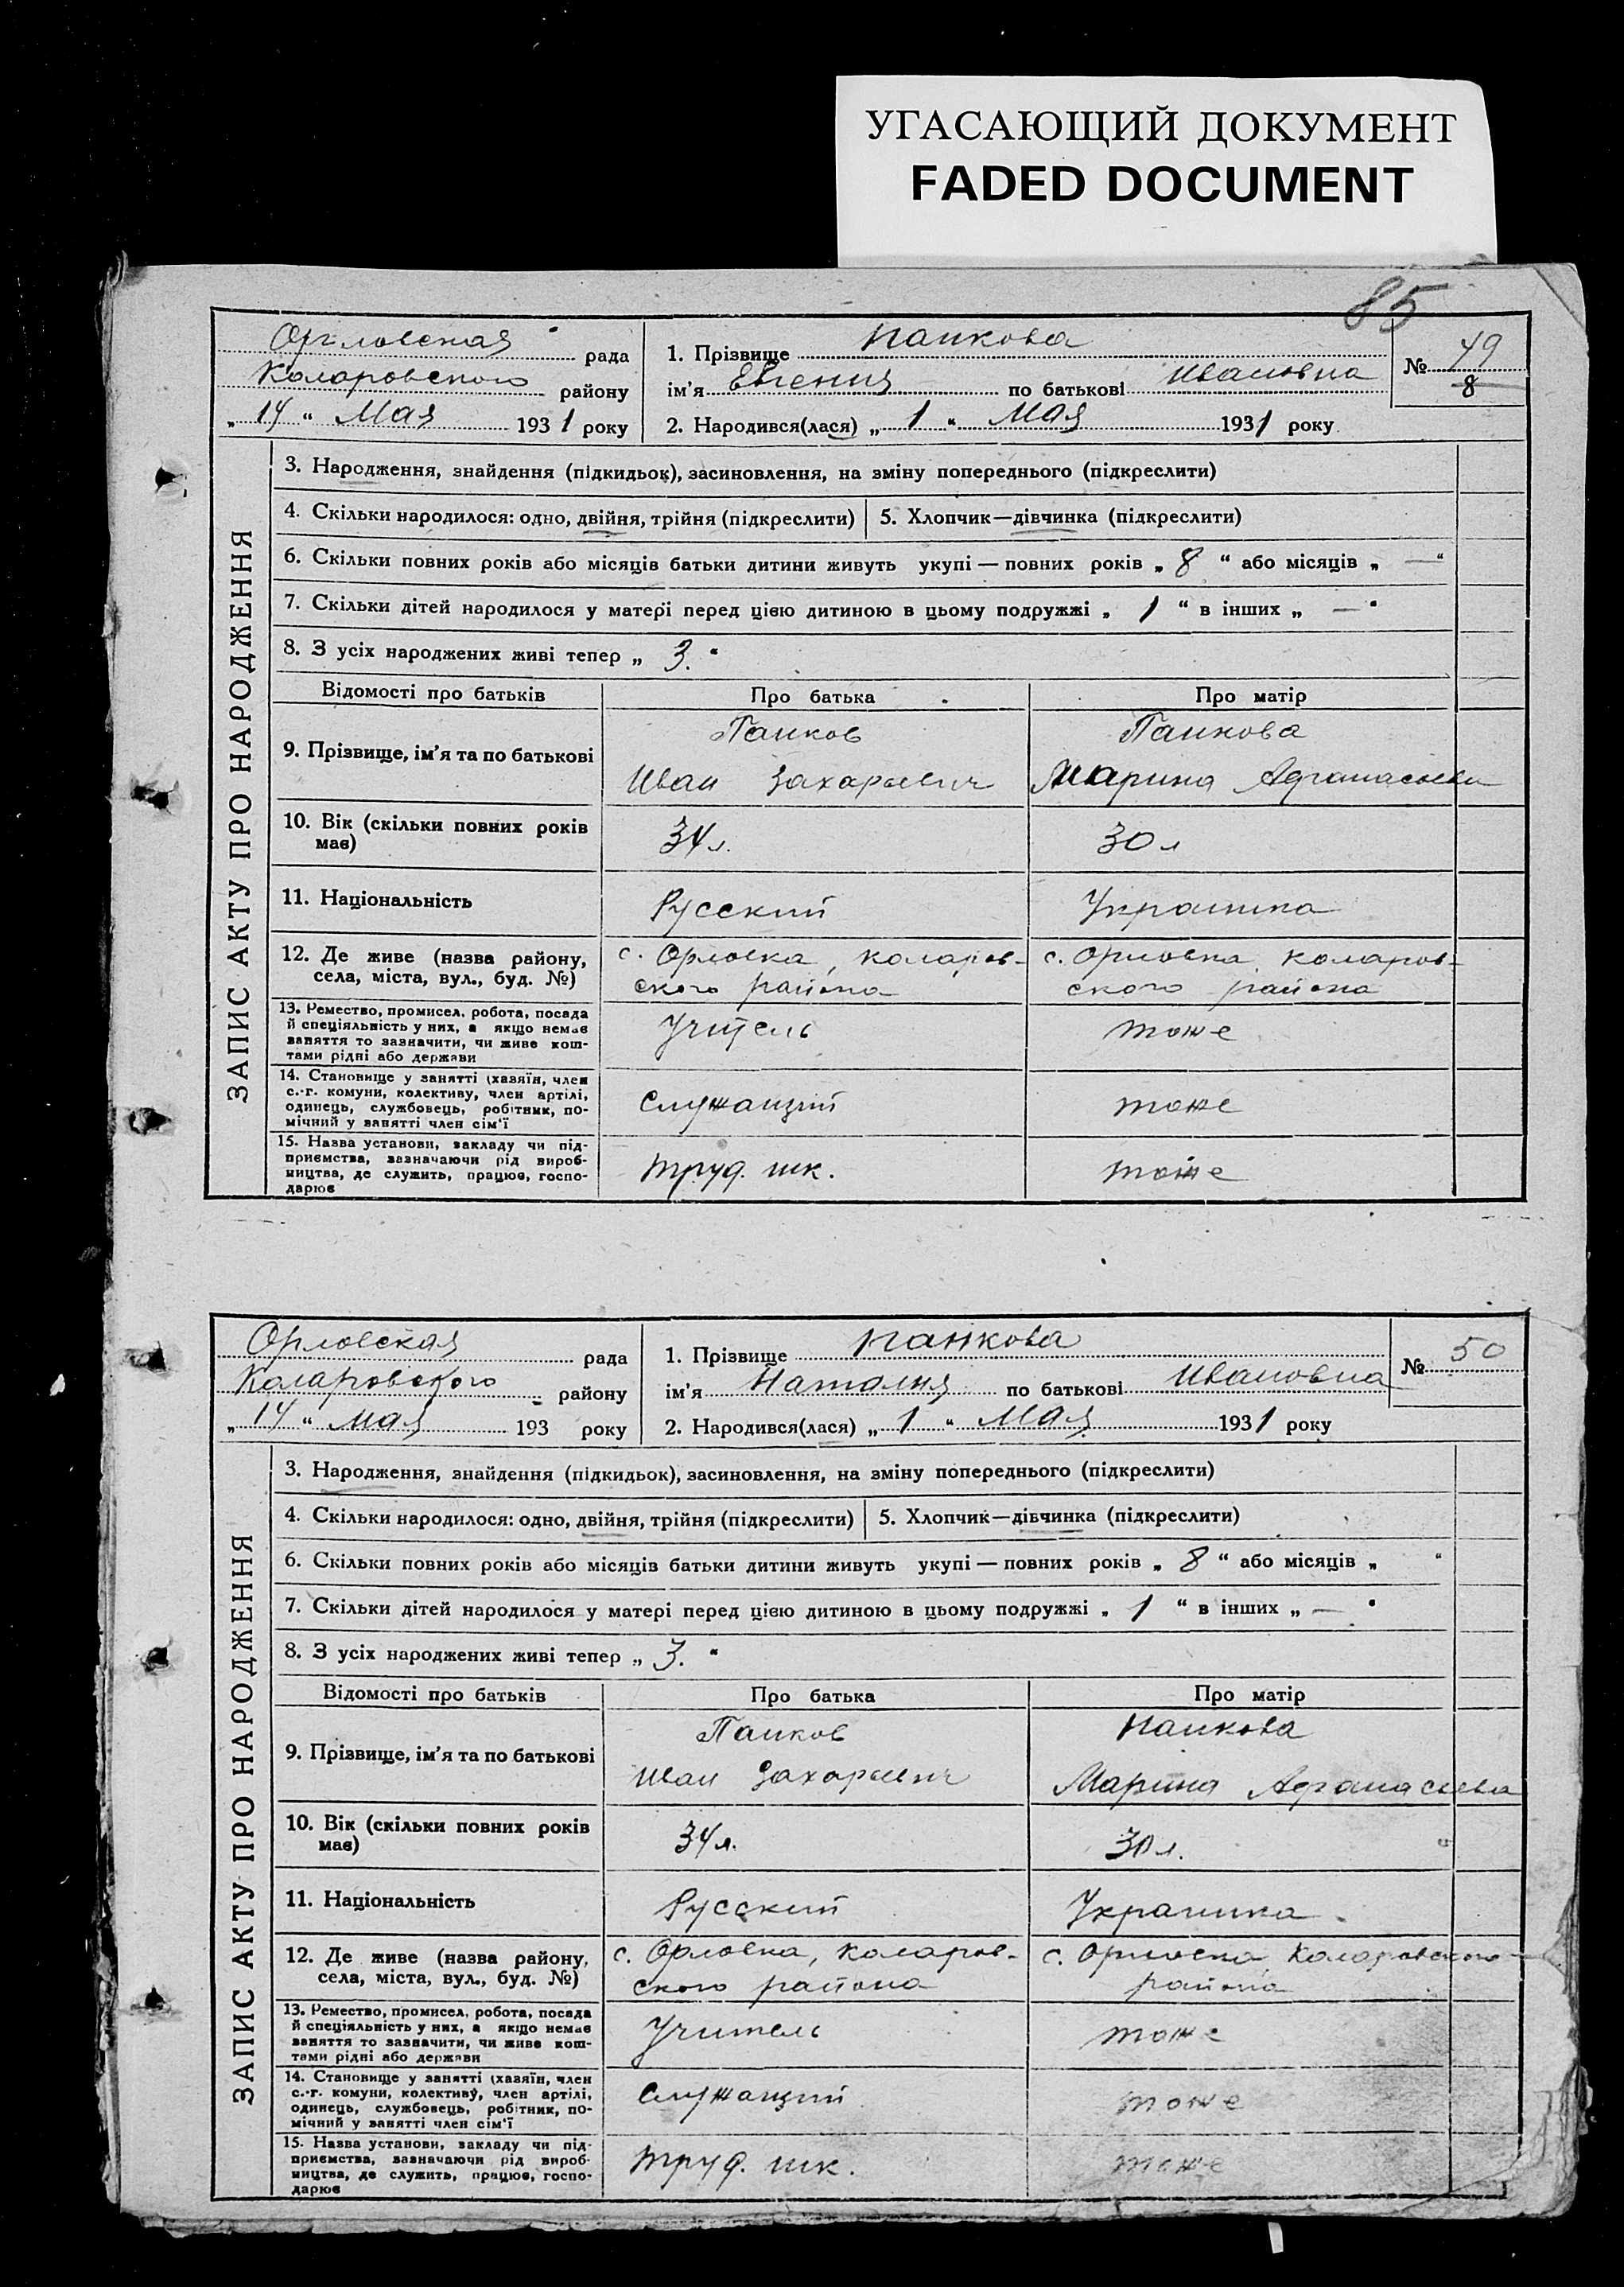 УГАСАЮЩИЙ ДОКУМЕНТ
FADED DOCUMENT
85
Орловская рада
Коларовского району
„ 14 “ Мая 1931 року
1. Прізвище Панкова
ім’я Евгения по батькові Ивановна
2. Народився(лася) „ 1 “ Мая 1931 року
№ 49
8
ЗАПИС АКТУ ПРО НАРОДЖЕННЯ
3. Народження, знайдення (підкидьок), засиновлення, на зміну попереднього (підкреслити)
4. Скільки народилося: одно, двійня, трійня (підкреслити) 5. Хлопчик—дівчинка (підкреслити)
6. Скільки повних років або місяців батьки дитини живуть укупі — повних років „ 8 “ або місяців „ — “
7. Скільки дітей народилося у матері перед цією дитиною в цьому подружжі „ 1 “ в інших „ — “
8. З усіх народжених живі тепер „ 3. “
Відомості про батьків Про батька Про матір
9. Прізвище, ім’я та по батькові
Панков
Иван Захарьевич
Панкова
Марина Афанасьевна
10. Вік (скільки повних років
має)
34 л.
30 л
11. Національність
Русский
Украинка
12. Де живе (назва району,
села, міста, вул., буд. №)
с. Орловка, Коларов-
ского района
с. Орловка, Коларов-
ского района
13. Ремество, промисел, робота, посада
й спеціяльність у них, а якщо немає
заняття то зазначити, чи живе кош-
тами рідні або держави
Учитель
тоже
14. Становище у занятті (хазяїн, член
с.-г. комуни, колективу, член артілі,
одинець, службовець, робітник, по-
мічний у занятті член сім’ї
Служащий
тоже
15. Назва установи, закладу чи під-
приємства, зазначаючи рід вироб-
ництва, де служить, працює, госпо-
дарює
труд. шк.
тоже
Орловская рада
Коларовского району
„ 14 “ мая 193 року
1. Прізвище Панкова
ім’я Наталия по батькові Ивановна
2. Народився(лася) „ 1 “ Мая 1931 року
№ 50
ЗАПИС АКТУ ПРО НАРОДЖЕННЯ
3. Народження, знайдення (підкидьок), засиновлення, на зміну попереднього (підкреслити)
4. Скільки народилося: одно, двійня, трійня (підкреслити) 5. Хлопчик—дівчинка (підкреслити)
6. Скільки повних років або місяців батьки дитини живуть укупі — повних років „ 8 “ або місяців „ “
7. Скільки дітей народилося у матері перед цією дитиною в цьому подружжі „ 1 “ в інших „ — “
8. З усіх народжених живі тепер „ 3. “
Відомості про батьків Про батька Про матір
9. Прізвище, ім’я та по батькові
Панков
Иван Захарьевич
Панкова
Марина Афанасьевна
10. Вік (скільки повних років
має)
34 л.
30 л.
11. Національність
Русский
Украинка
12. Де живе (назва району,
села, міста, вул., буд. №)
с. Орловка, Коларов-
ского района
с. Орловка Коларовского
района
13. Ремество, промисел, робота, посада
й спеціяльність у них, а якщо немає
заняття то зазначити, чи живе кош-
тами рідні або держави
Учитель
тоже
14. Становище у занятті (хазяїн, член
с.-г. комуни, колективу, член артілі,
одинець, службовець, робітник, по-
мічний у занятті член сім’ї
Служащий
тоже
15. Назва установи, закладу чи під-
приємства, зазначаючи рід вироб-
ництва, де служить, працює, госпо-
дарює
труд. шк.
тоже